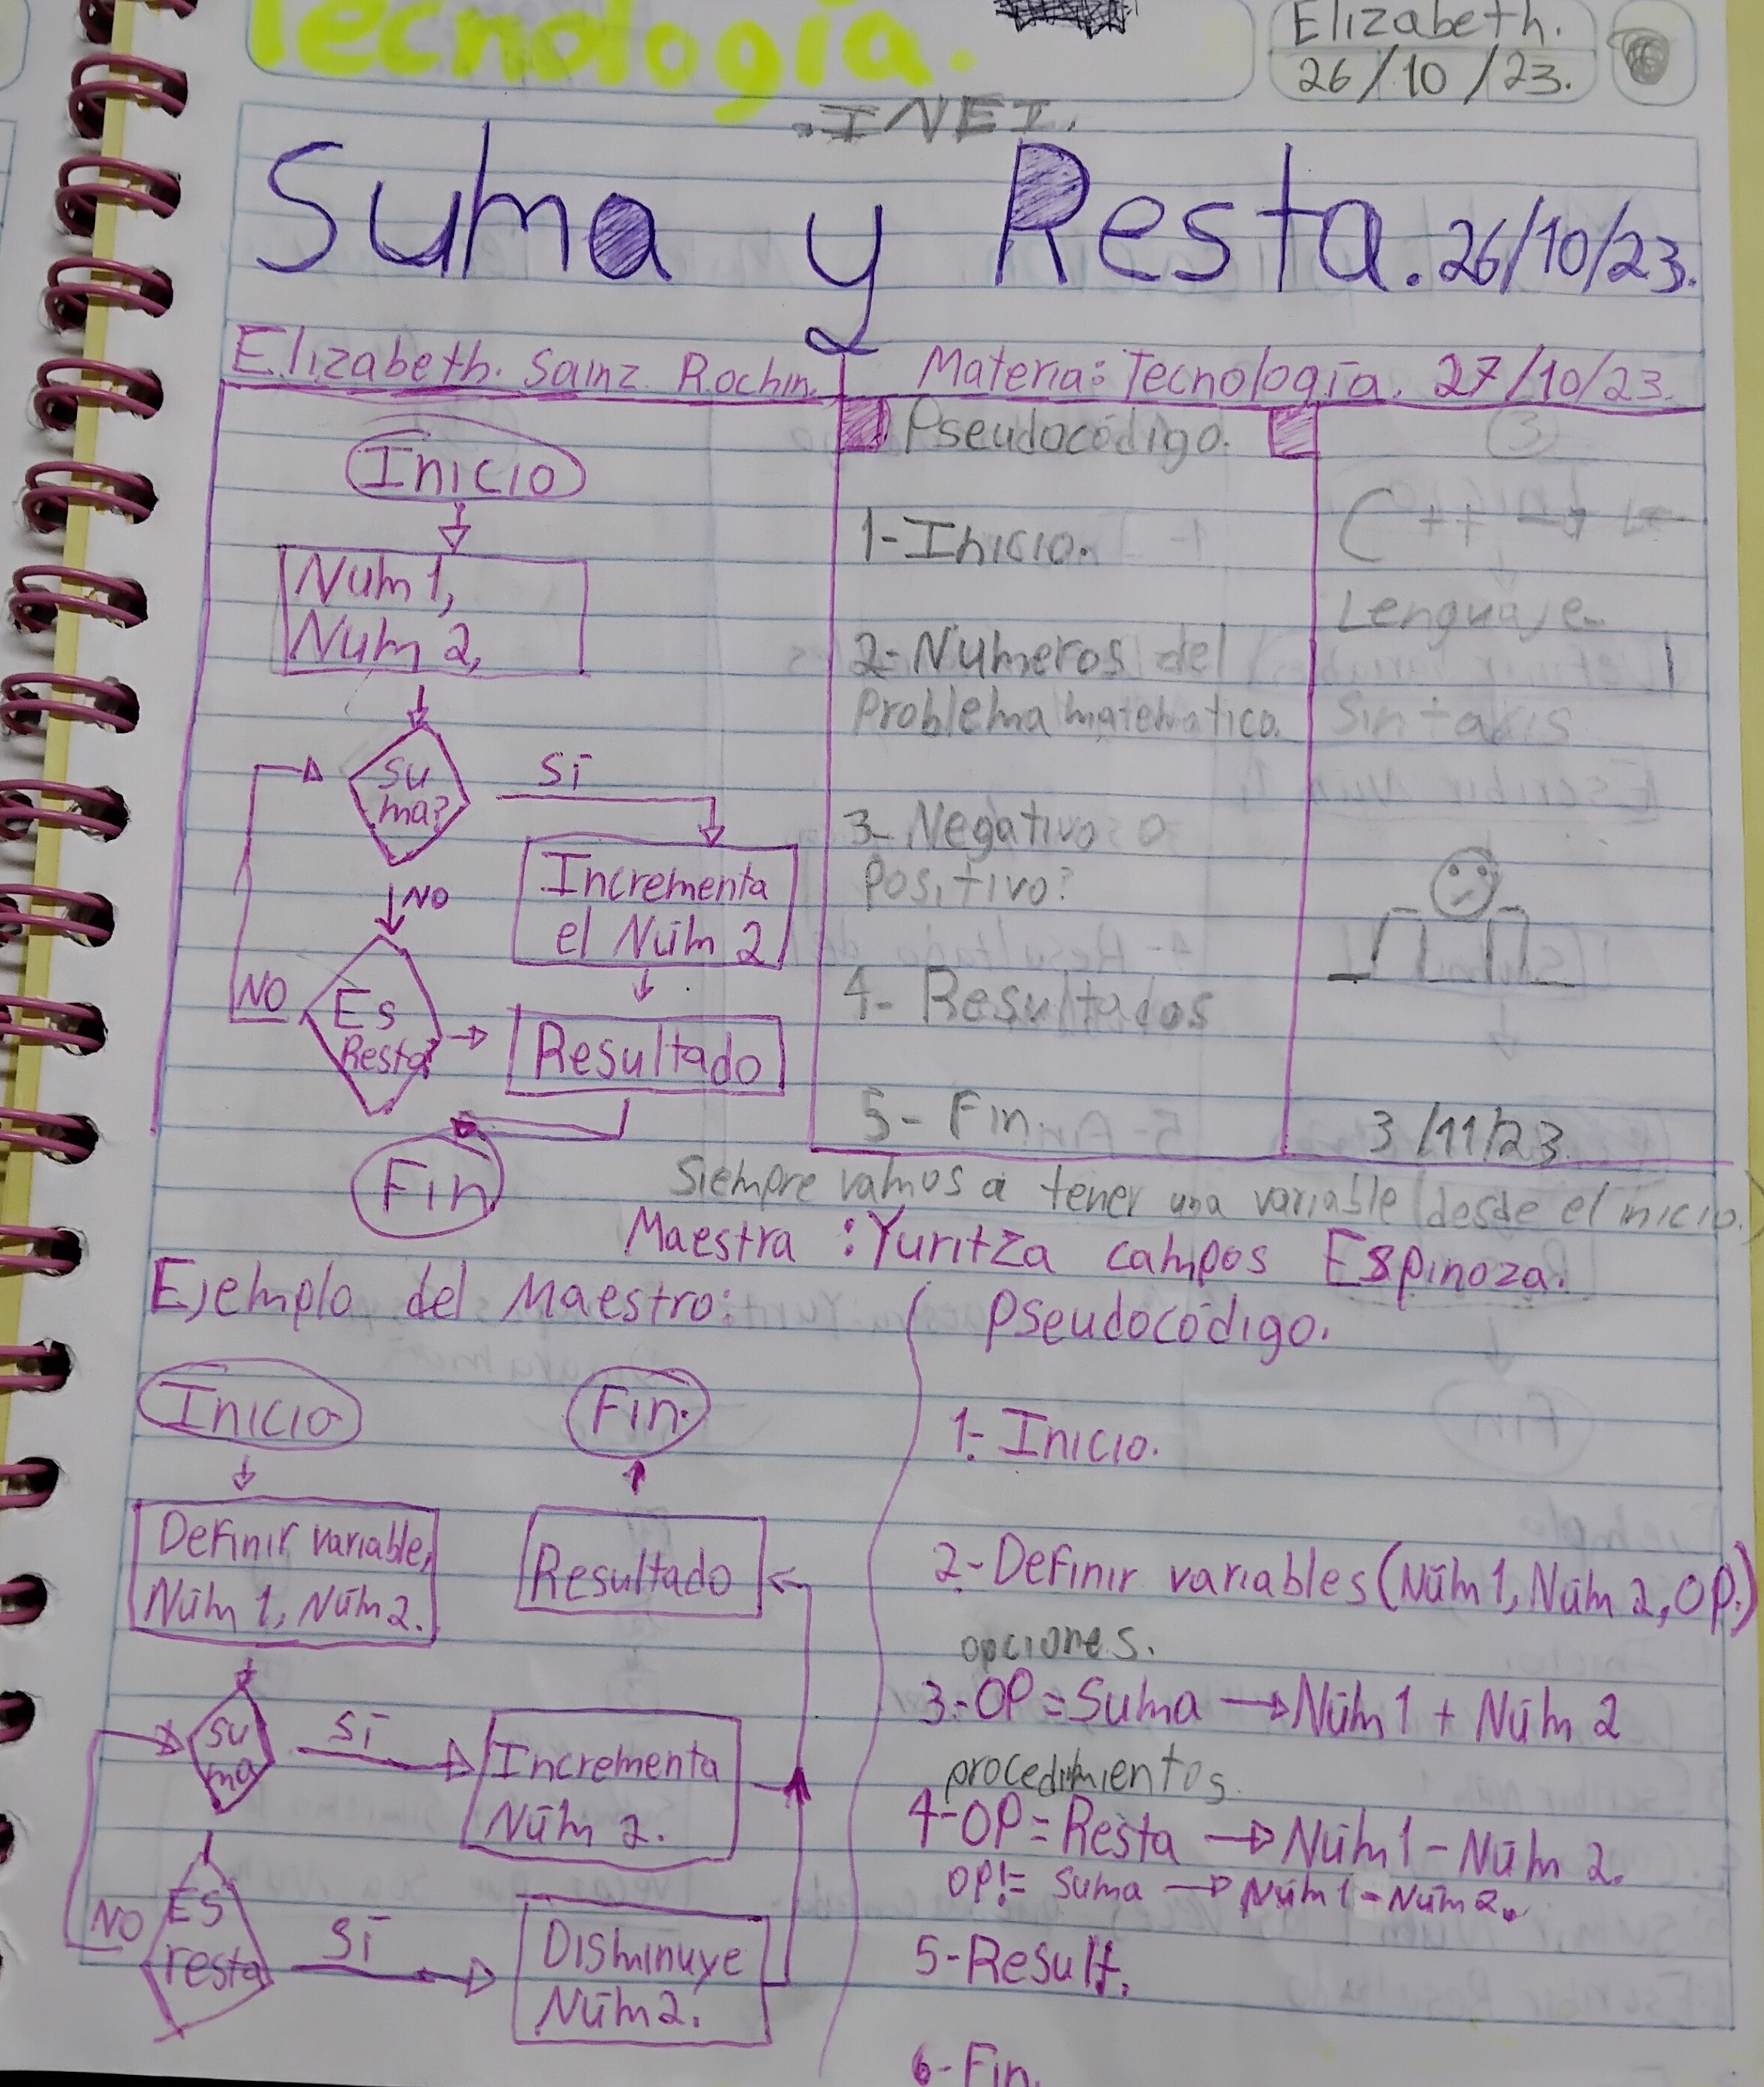 Tecnología.
Elizabeth.
26/10/23.
.INEI.
Suma y Resta. 26/10/23.
Elizabeth. Sainz Rochin.
Materia: Tecnología. 27/10/23.
Inicio
Num 1,
Num 2,
su
ma?
SI
NO
Incrementa
el Núm 2
Es
Resta?
NO
Resultado
Fin
Pseudocódigo.
1- Inicio.
2- Numeros del
Problema matematico.
3- Negativo o
Positivo?
4- Resultados
5- Fin.
3
C++
Lenguaje
Sintaxis
3/11/23.
Siempre vamos a tener una variable (desde el inicio.)
Maestra : Yuritza campos Espinoza.
Ejemplo del Maestro:
Inicio
Fin.
Definir variable,
Núm 1, Núm 2.
Resultado
su
ma
SI
Incrementa
Núm 2.
ES
resta
NO
SI
Disminuye
Núm 2.
Pseudocódigo.
1.- Inicio.
2.- Definir variables (Núm 1, Núm 2, OP.)
opciones.
3.- OP = Suma → Núm 1 + Núm 2
procedimientos.
4- OP = Resta → Núm 1 - Núm 2.
OP != suma → Núm 1 - Núm 2.
5- Result.
6- Fin.